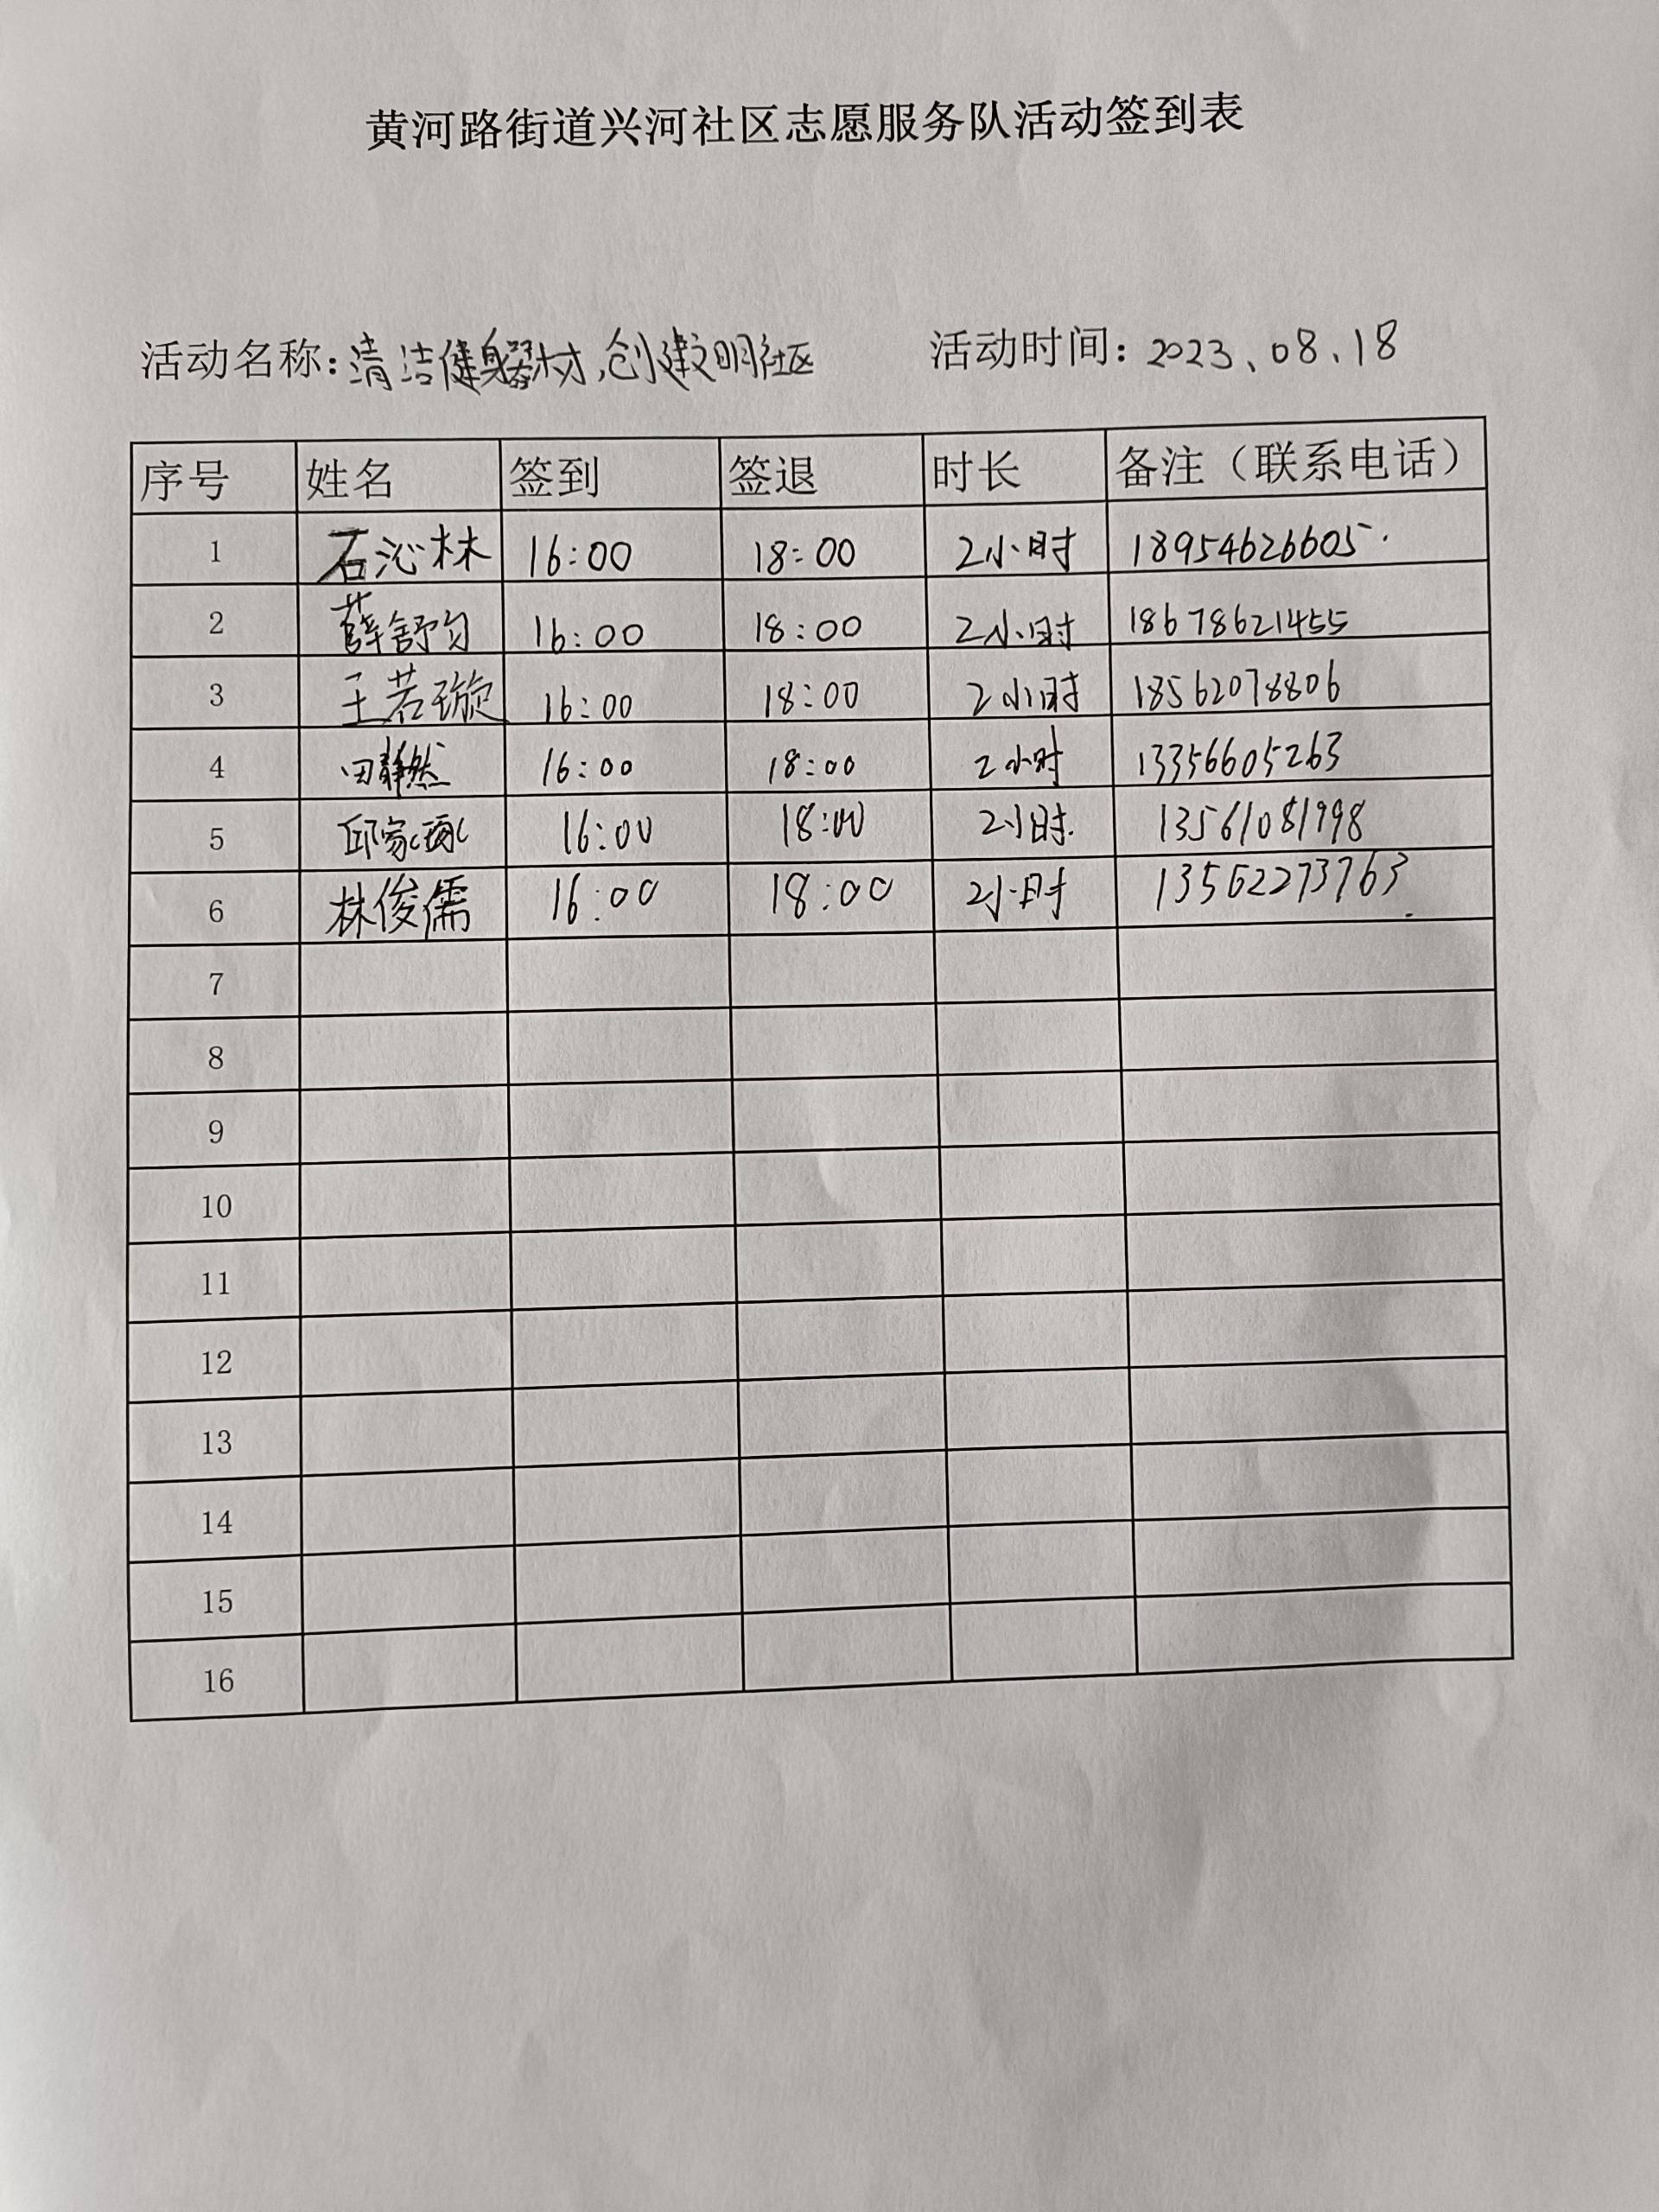 黄河路街道兴河社区志愿服务队活动签到表
活动名称：清洁健身器材，创建文明社区 活动时间：2023、08、18
序号 姓名 签到 签退 时长 备注（联系电话）
1 石沁林 16:00 18:00 2小时 18954626605.
2 薛舒匀 16:00 18:00 2小时 18678621455
3 王若璇 16:00 18:00 2小时 18562078806
4 田静然 16:00 18:00 2小时 13356605263
5 邱家 16:00 18:00 2小时. 13561081998
6 林俊儒 16:00 18:00 2小时 13562273763.
7
8
9
10
11
12
13
14
15
16